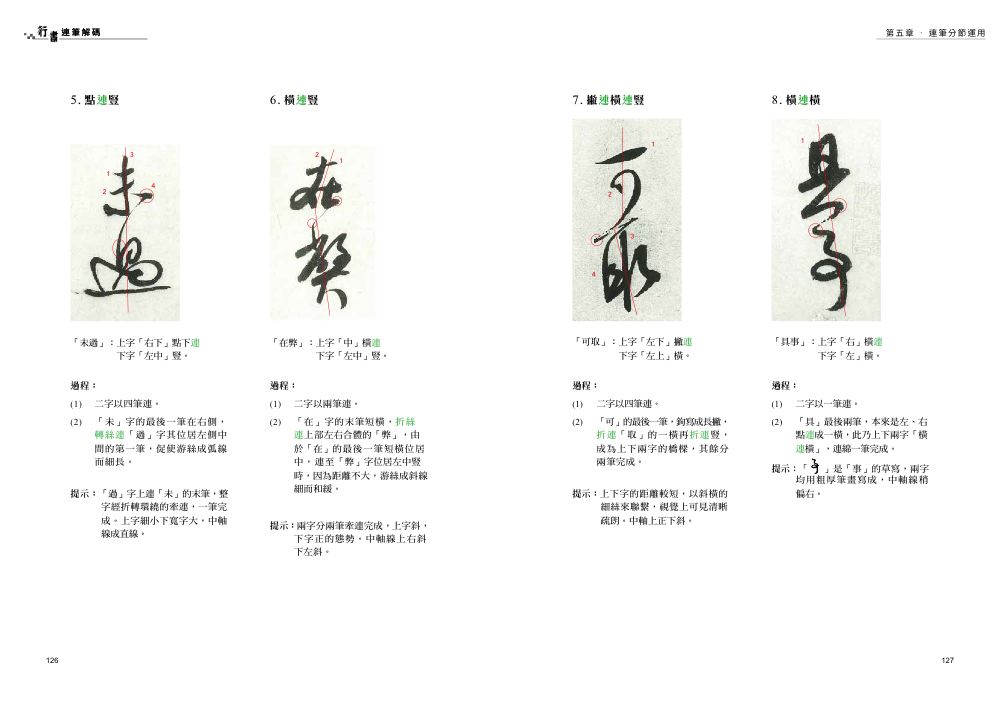 行書 連筆解碼
第五章 · 連筆分節運用
5. 點連豎
未過
1
2
3
4
「未過」：上字「右下」點下連
下字「左中」豎。
過程：
(1) 二字以四筆連。
(2) 「未」字的最後一筆在右側，
轉絲連「過」字其位居左側中
間的第一筆，促使游絲成弧線
而細長。
提示：「過」字上連「未」的末筆，整
字經折轉環繞的牽連，一筆完
成。上字細小下寬字大，中軸
線成直線。
6. 橫連豎
在弊
1
2
「在弊」：上字「中」橫連
下字「左中」豎。
過程：
(1) 二字以兩筆連。
(2) 「在」字的末筆短橫，折絲
連上部左右合體的「弊」，由
於「在」的最後一筆短橫位居
中，連至「弊」字位居左中豎
時，因為距離不大，游絲成斜線
細而和緩。
提示：兩字分兩筆牽連完成，上字斜，
下字正的態勢。中軸線上右斜
下左斜。
126
7. 撇連橫連豎
可取
1
2
3
4
「可取」：上字「左下」撇連
下字「左上」橫。
過程：
(1) 二字以四筆連。
(2) 「可」的最後一筆，鉤寫成長撇，
折連「取」的一橫再折連豎，
成為上下兩字的橋樑，其餘分
兩筆完成。
提示：上下字的距離較短，以斜橫的
細絲來聯繫，視覺上可見清晰
疏朗。中軸上正下斜。
8. 橫連橫
具事
1
「具事」：上字「右」橫連
下字「左」橫。
過程：
(1) 二字以一筆連。
(2) 「具」最後兩筆，本來是左、右
點連成一橫，此乃上下兩字「橫
連橫」，連綿一筆完成。
提示：「事」是「事」的草寫，兩字
均用粗厚筆畫寫成，中軸線稍
偏右。
127